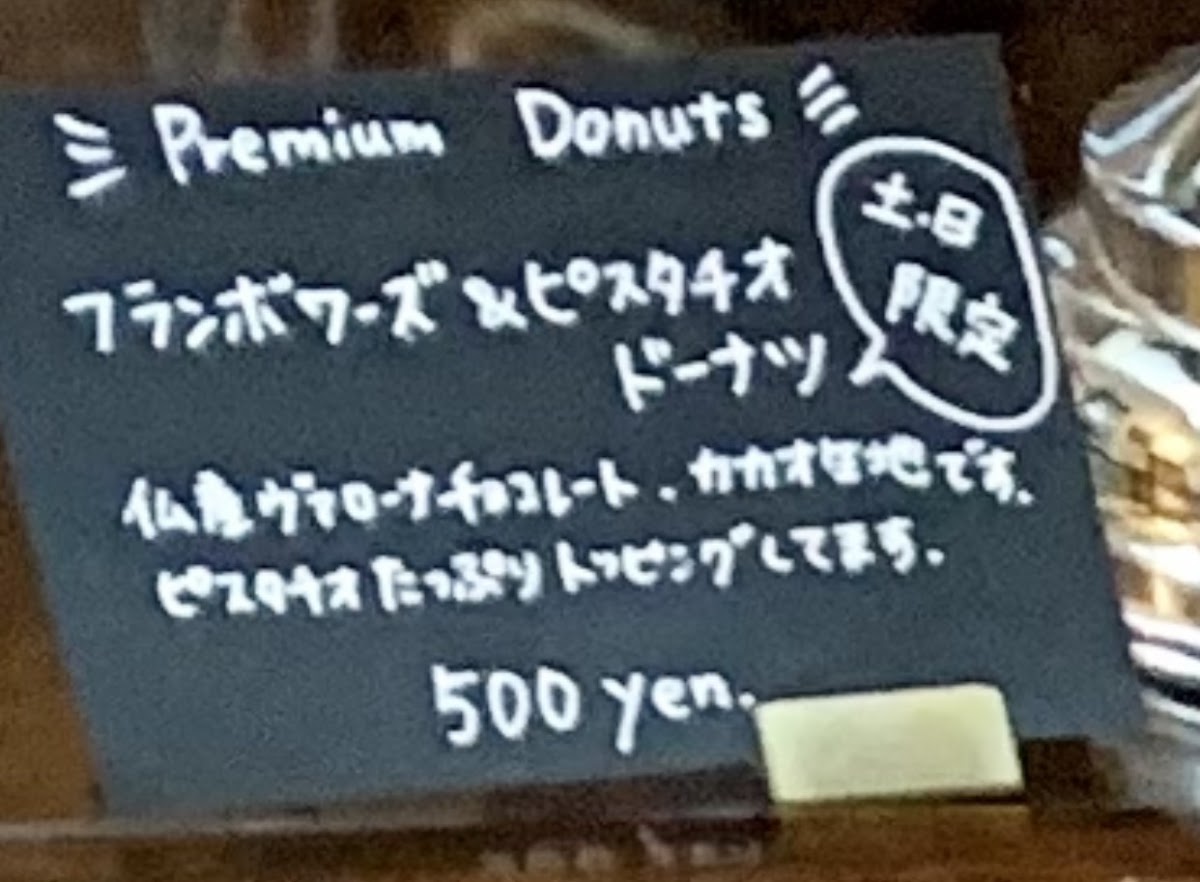 Premium Donuts
土.日
限定
フランボワーズ&ピスタチオ
ドーナツ
仏産ヴァローナチョコレート、カカオ生地です.
ピスタチオたっぷりトッピングしてます.
500 yen.